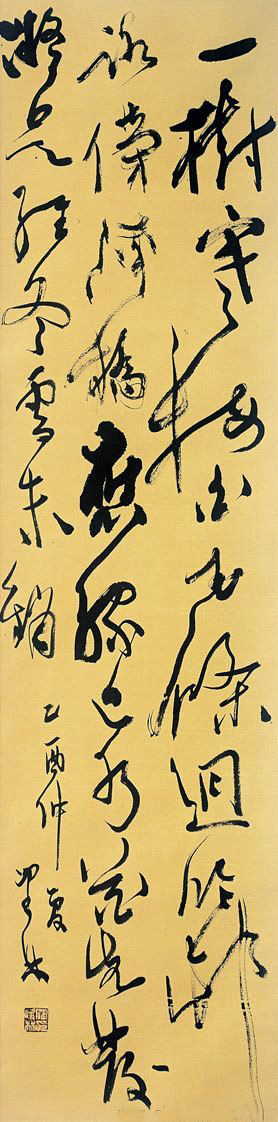 一樹寒梅白玉條迥臨村
路傍溪橋應緣近水花先發
疑是經冬雪未銷
乙酉仲夏